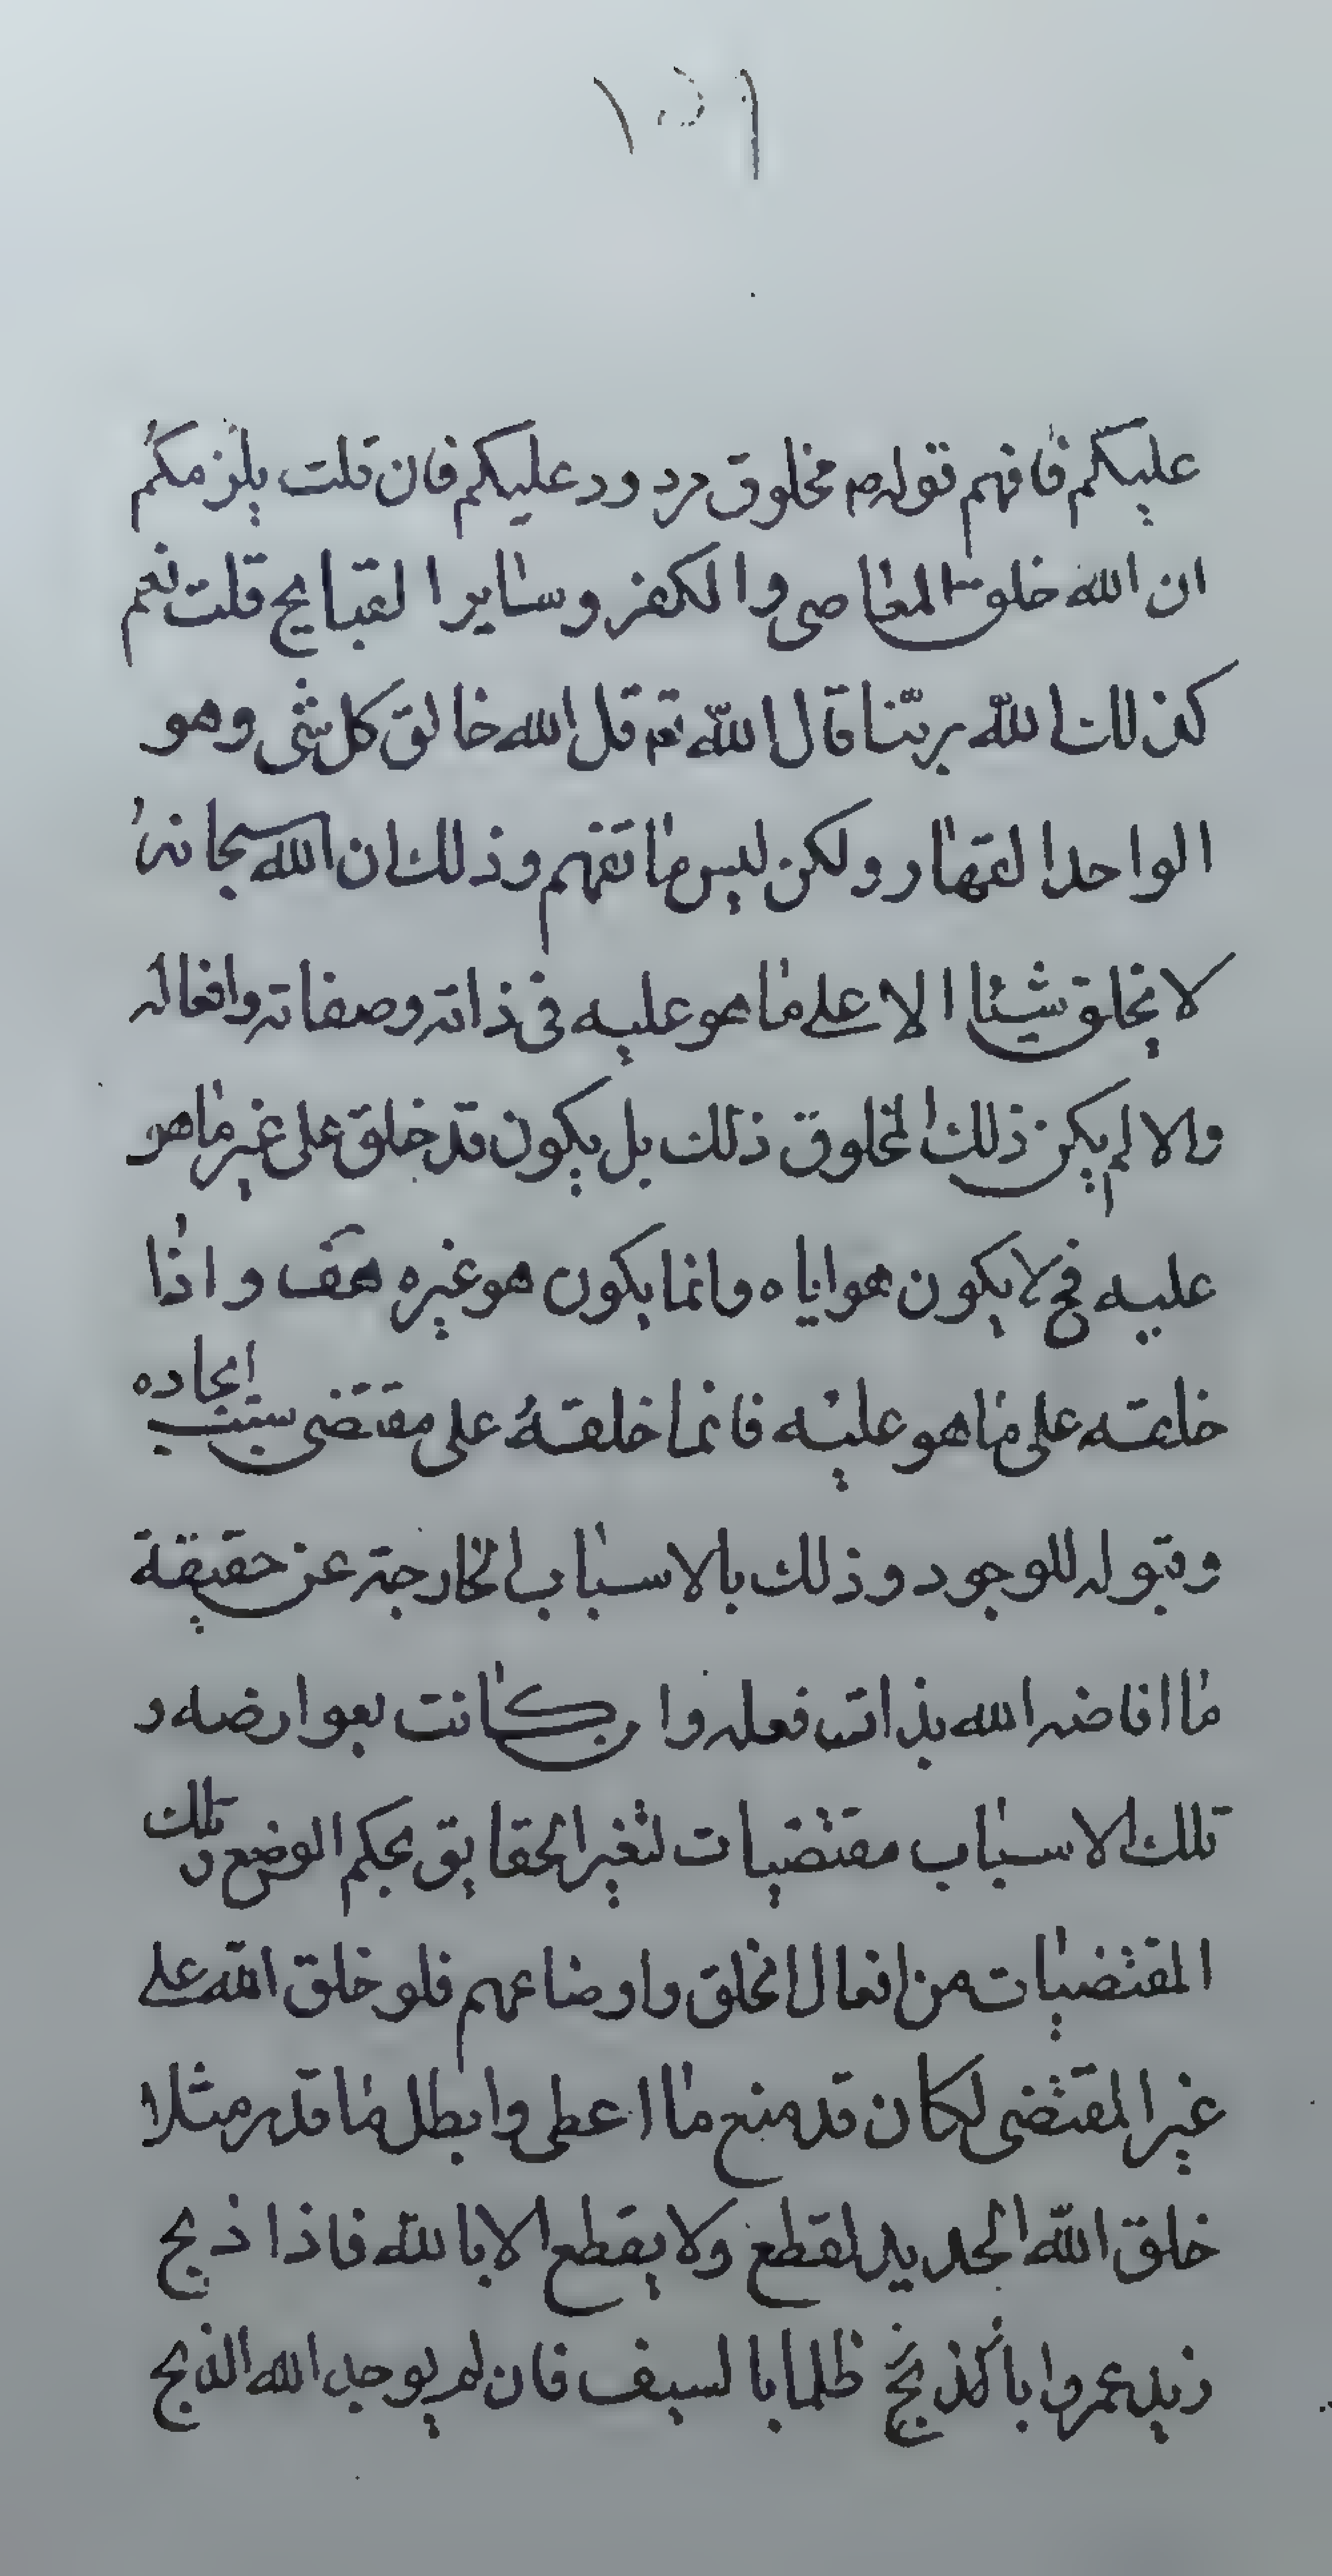 عليكم فافهم قوله مخلوق مردود عليكم فان قلت يلزمكم
ان الله خلق المعاصى والكفر وساير القبايح قلت نعم
كذلك الله ربّنا قال الله تعـ قل الله خالق كل شئ وهو
الواحد القهار ولكن ليس ما تفهم وذلك ان الله سبحانه
لا يخلق شيئا الا على ما هو عليه فى ذاته وصفاته وافعاله
والا لم يكن ذلك المخلوق ذلك بل يكون قد خلق على غير ما هو
عليه فح لا يكون هو اياه وانما يكون هو غيره هف واذا
خلقه على ما هو عليه فانما خلقه على مقتضى سبب ايجاده
وقبوله للوجود وذلك بالاسباب الخارجة عن حقيقة
ما افاضه الله بذات فعله وا كانت بعوارضه و
تلك الاسباب مقتضيات لتغير الحقايق بحكم الوضع و تلك
المقتضيات من افعال الخلق واوضاعهم فلو خلق الله على
غير المقتضى لكان قد منع ما اعطى وابطل ما قدر مثلا
خلق الله الحديد لقطع ولا يقطع الا بالله فاذا ذبح
زيد عمروا بالذبح ظلما بالسيف فان لم يوجد الله الذبح